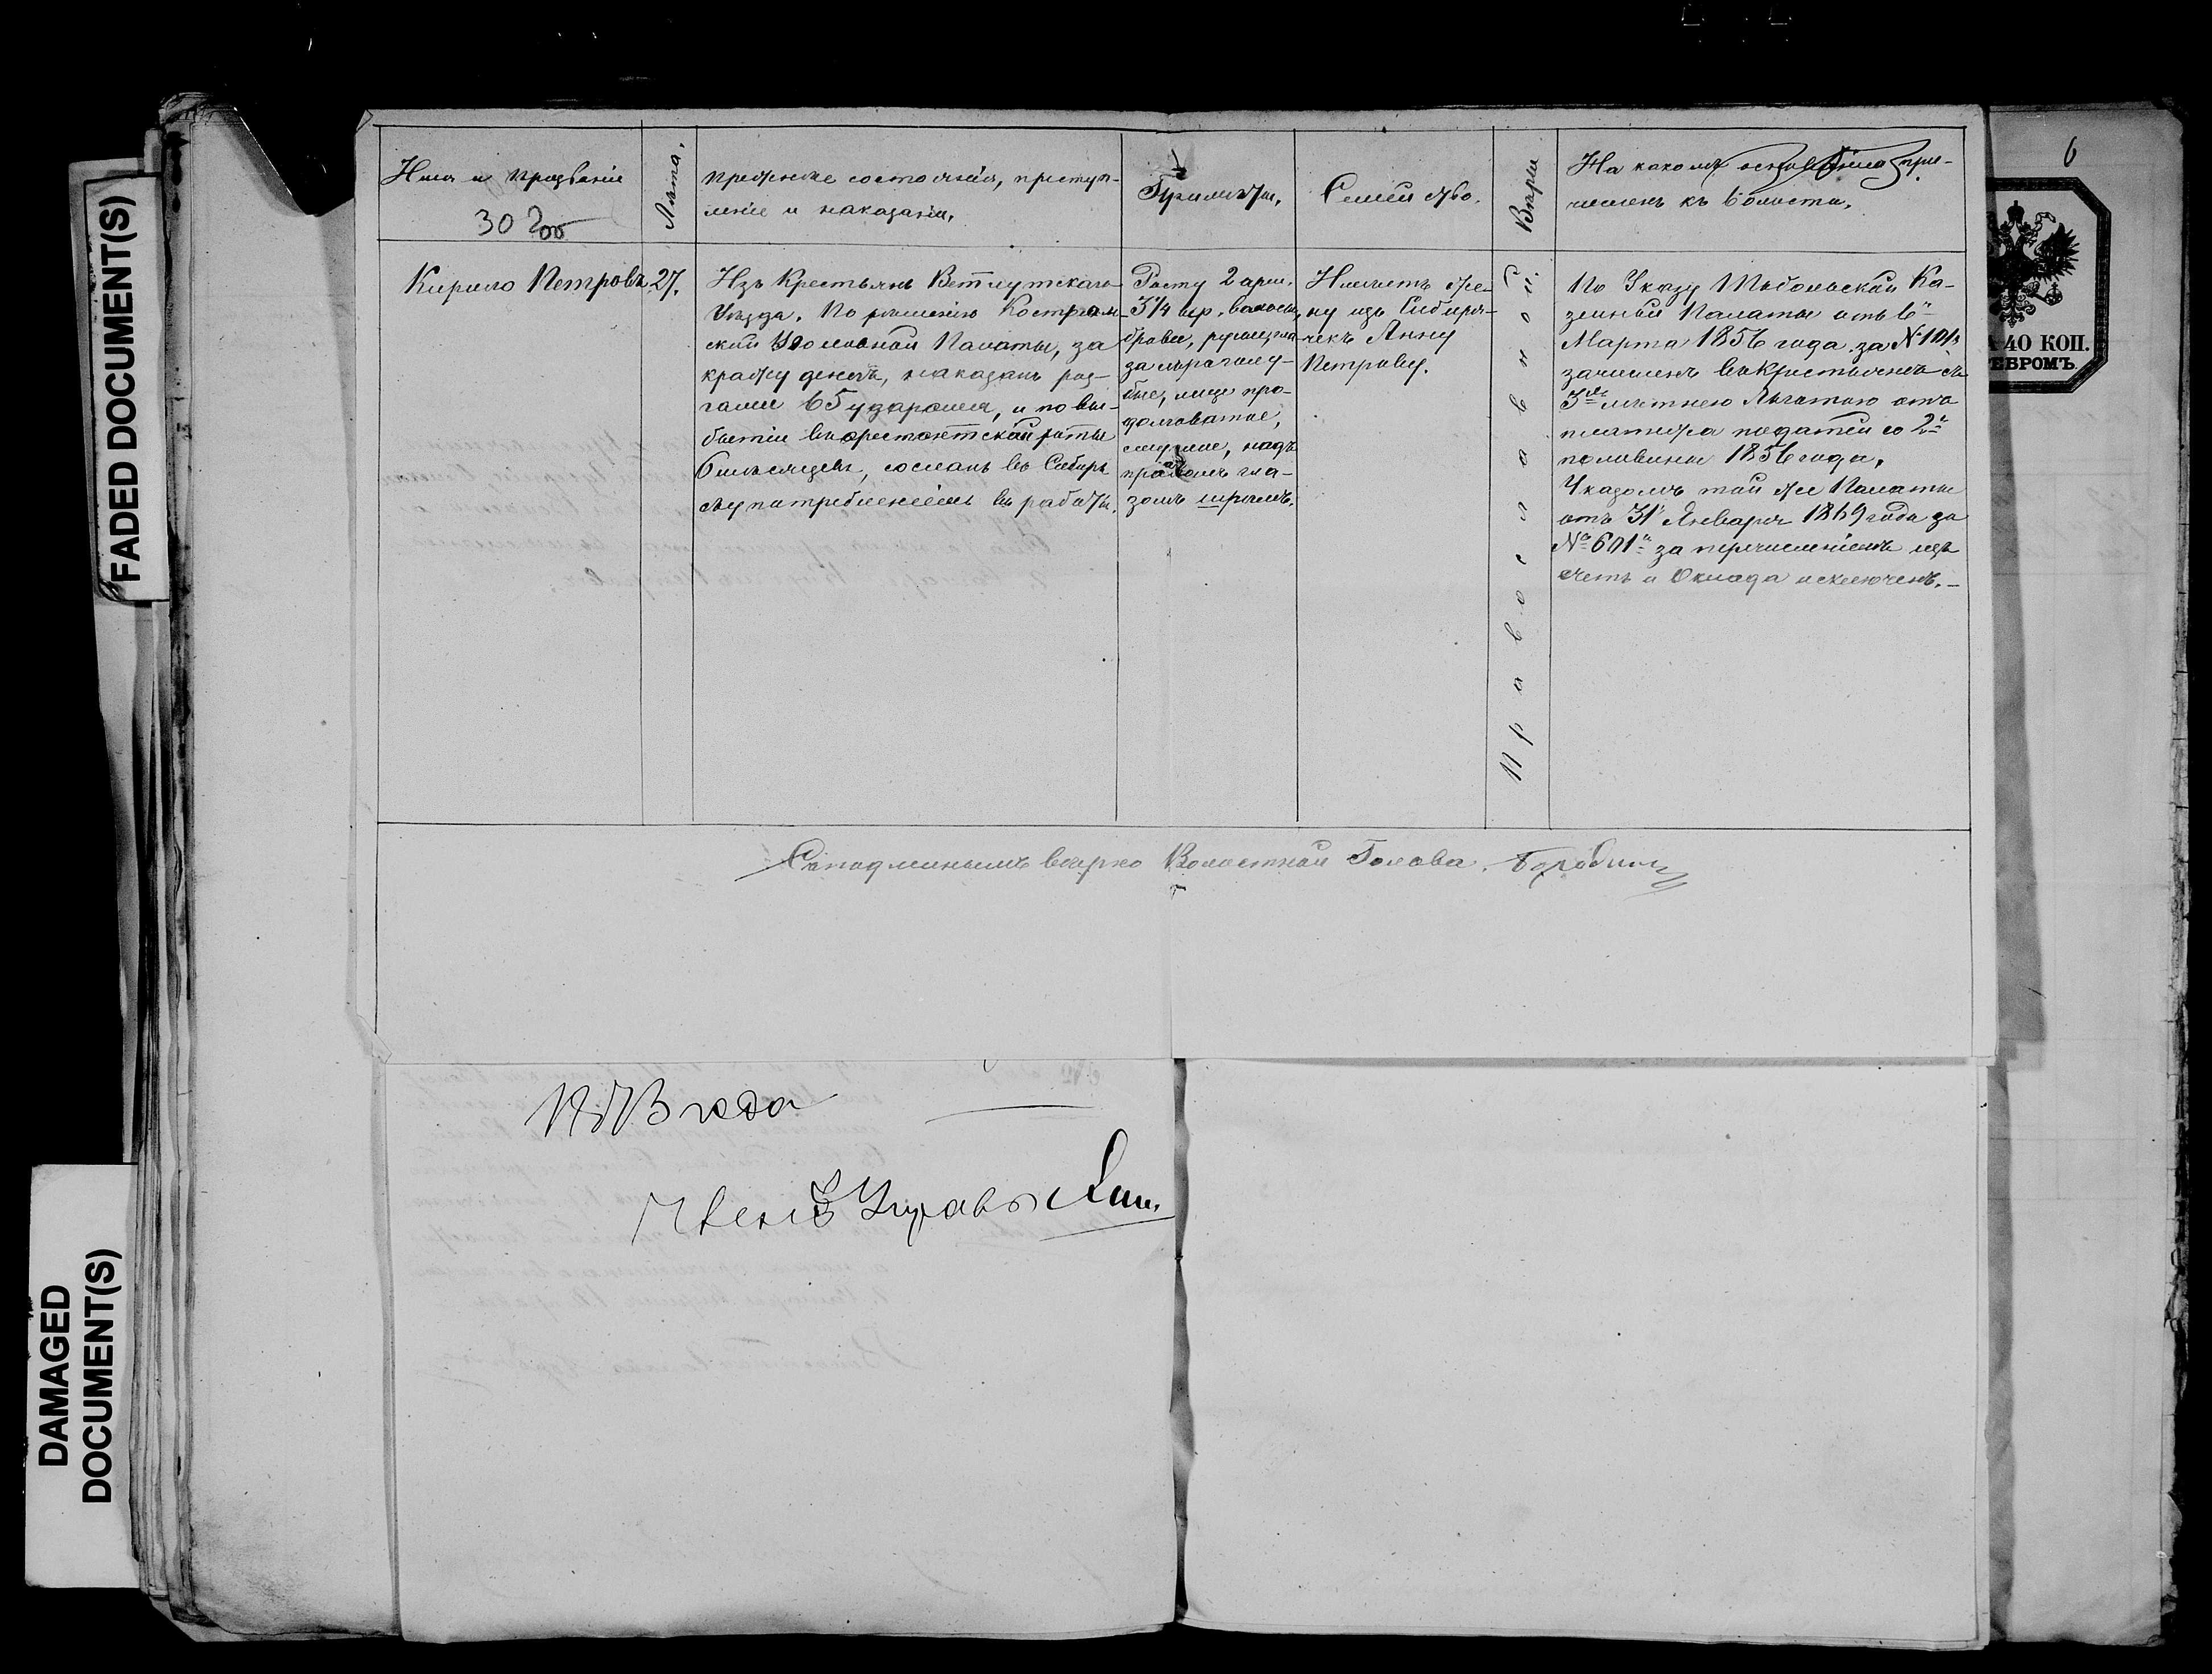 6
40 КОП.
ЕБРОМЪ.
FADED DOCUMENT(S)
DAMAGED
DOCUMENT(S)
Имя и прозваніе
Лѣта.
Прежнее состояніе, преступ-
леніе и наказаніе.
Примѣты.
Семейство.
Вѣры
На какомъ основаніи при-
численъ къ волости.
Кирило Петровъ
27.
Изъ Крестьянъ Ветлугскаго
Уѣзда. По рѣшенію Костром-
ской Уголовной Палаты, за
кражу денегъ, наказанъ роз-
гами 65 ударами, и по вы-
бытіи въ арестантской роты
6 мѣсяцевъ, сосланъ въ Сибирь
съ употребленіемъ въ работы.
Росту 2 арш.
3 1/4 вер. волосы,
брови, русые, гла-
за сѣроголу-
бые, лице про-
долговатое,
смуглое, надъ
правымъ гла-
зомъ шрамъ.
Имѣетъ же-
ну изъ Сибиря-
чекъ Анну
Петрову.
Православной.
По Указу Тобольской Ка-
зенной Палаты отъ 6
Марта 1856 года за №
зачисленъ въ крестьяне съ
3 лѣтнею льготою отъ
платежа податей со 2й
половины 1856 года.
Указомъ той же Палаты
отъ 31 Января 1869 года за
№ 601 за перечисленіемъ изъ
счета и Оклада исключенъ.
Съ подлиннымъ вѣрно Волостной Голова. Бородинъ